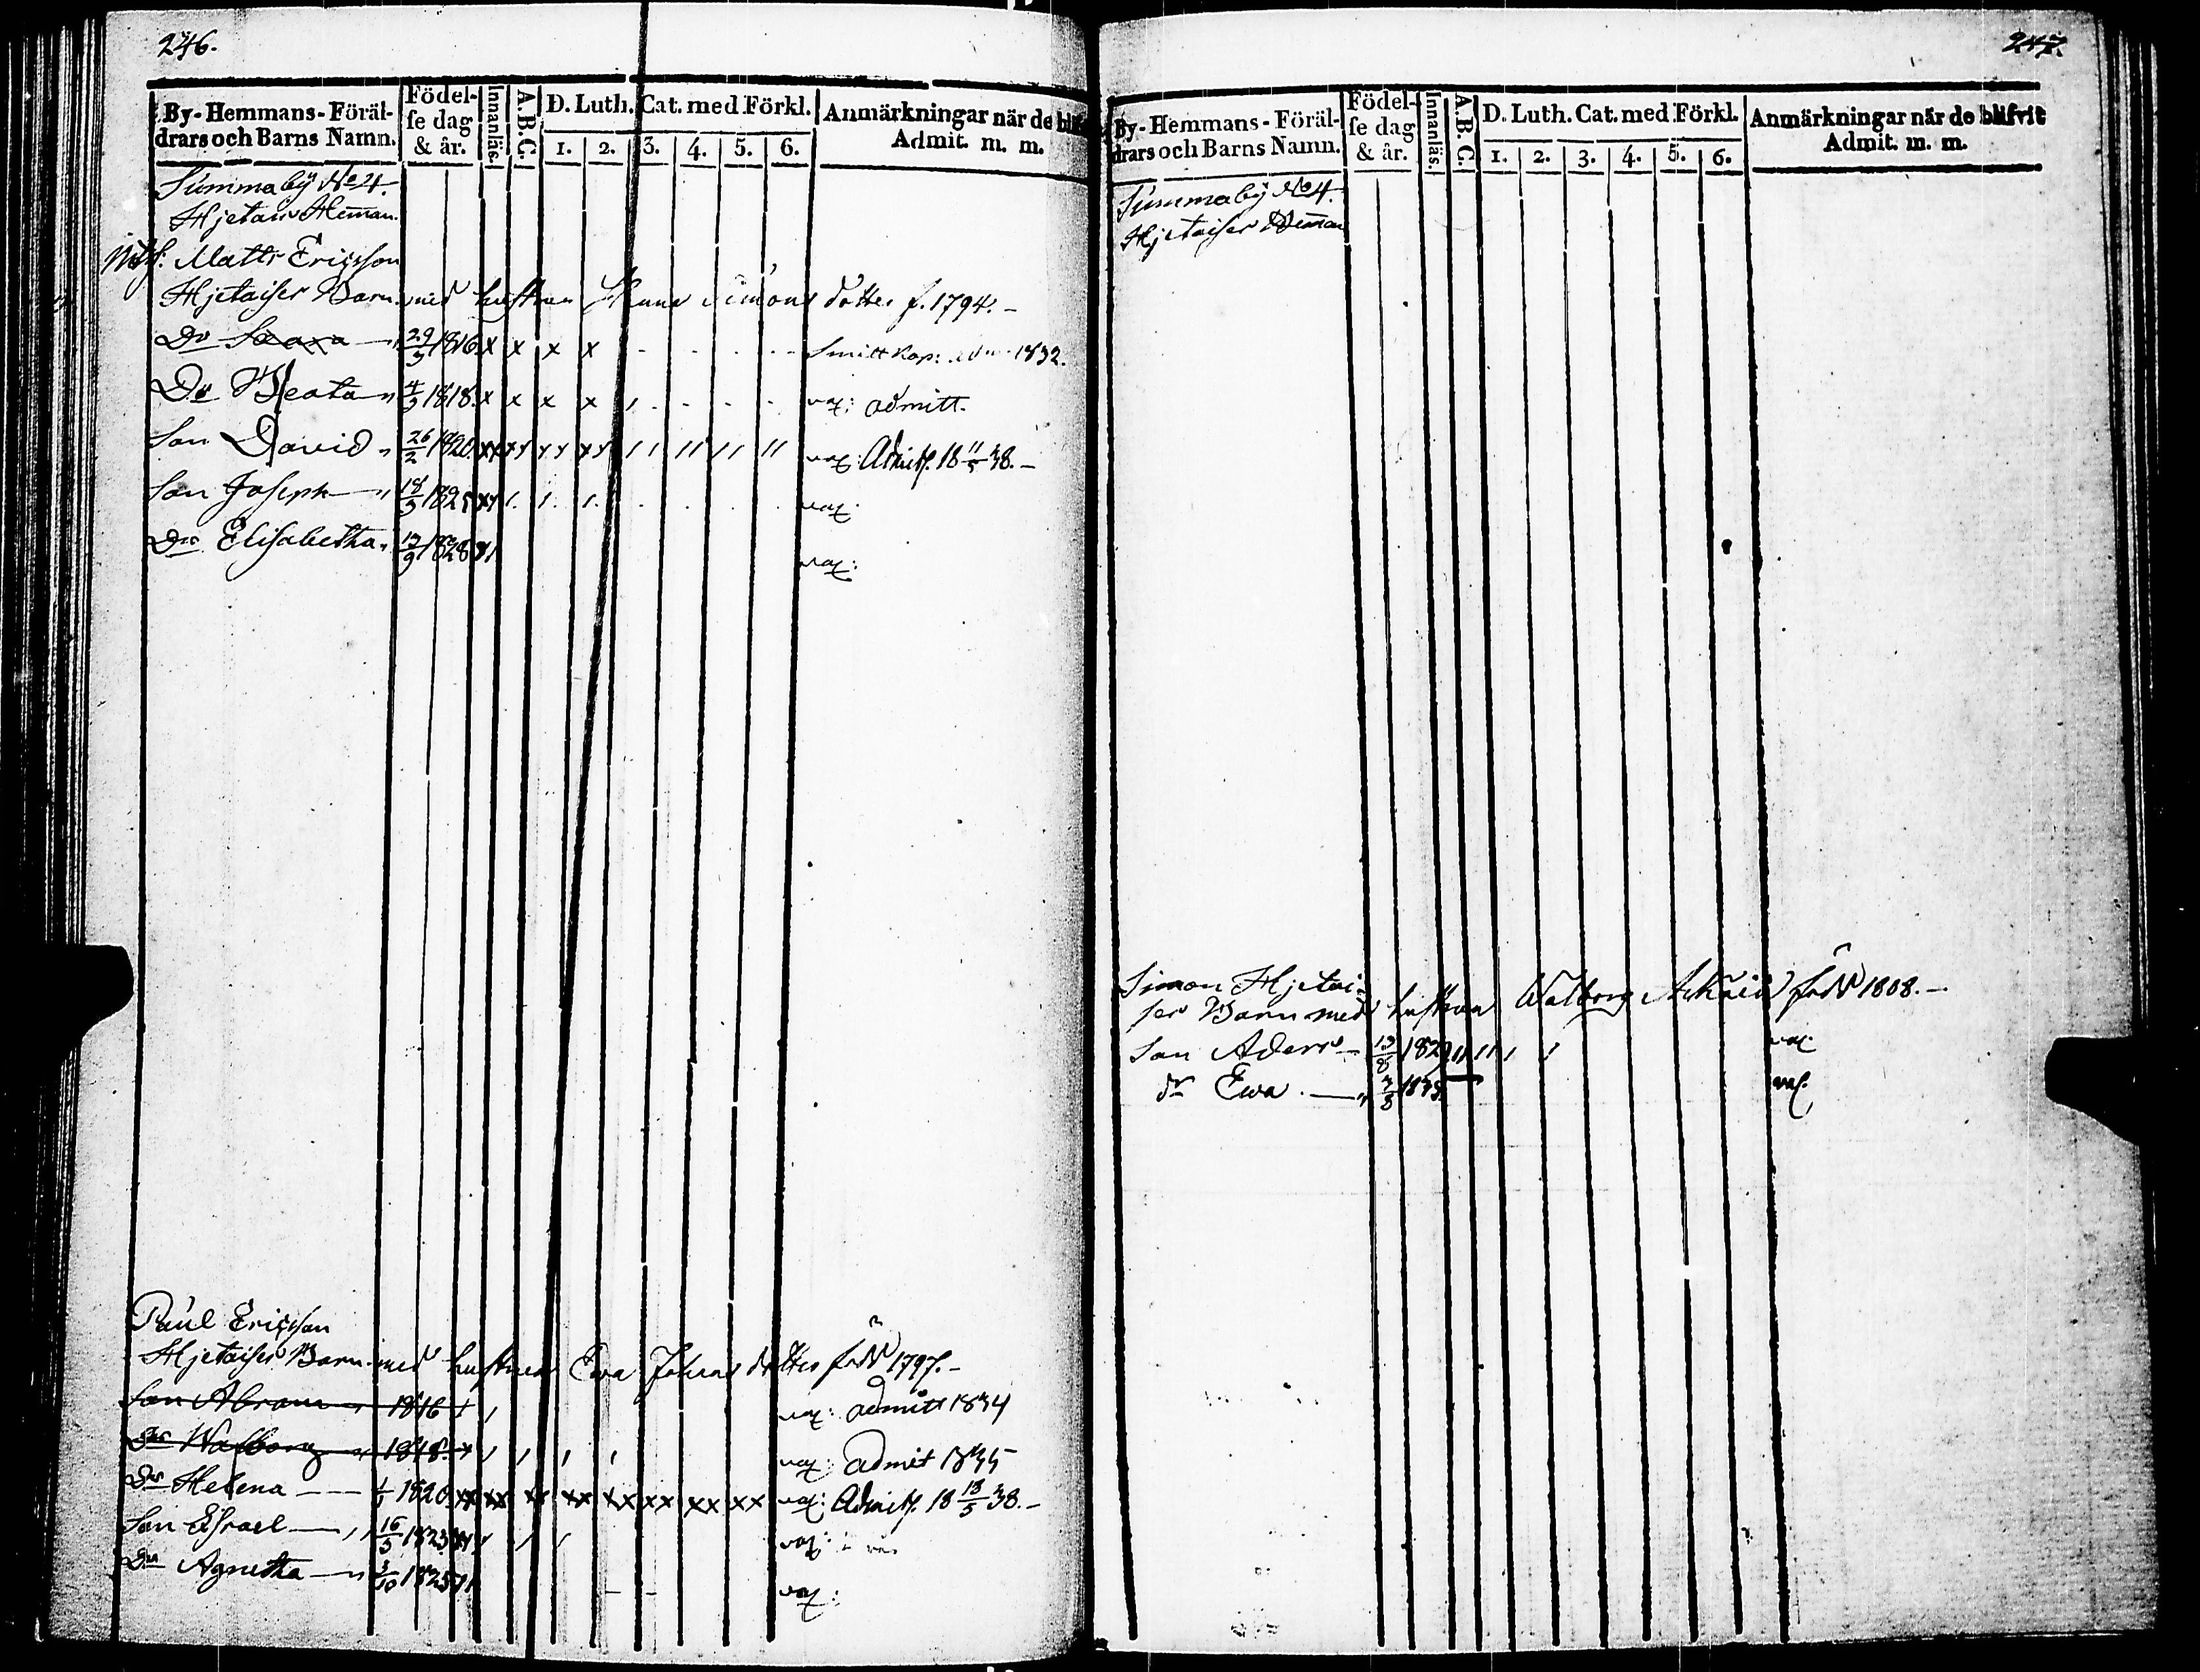 246.
By-Hemmans-Föräl-
drars och Barns Namn.
Födel-
se dag
& år.
Innanläs.
A.B.C.
D. Luth. Cat. med Förkl.
1. 2. 3. 4. 5. 6.
Anmärkningar när de
Admit. m. m.
Summaby No 4.
Hjetais Heman.
Matts Ericsson
Hjetaiser Barn med hustrun Simons dotter f. 1794. -
Dr 29/3 1816 x x x x - - - - 1832.
Dr Beata " 4/3 1818 x x x x , - - - vac: admitt.
Son David " 26/2 1820 xx xx xx xx 11 11 11 11 vac: Admitt. 18 11/5 38. -
Son Joseph " 18/3 1825 vac:
Dr Elisabetha " 13/9 1828 vac:
Paul Ericsson
Hjetaiser Barn med hustrun Ewa Johans dotter född 1797. -
Son Abram " 1816 vac: admitt 1834
Dr Walborg " 1818 vac: admit 1835
Dr Helena 1/1 1820 xx xx xx xx xx xx xx xx vac: Admitt. 18 18/5 38. -
Son Esrael " 16/5 1823 vac:
Dr Agnetha " 3/10 1825 vac:
247.
By-Hemmans-Föräl-
drars och Barns Namn.
Födel-
se dag
& år.
Innanläs.
A.B.C.
D. Luth. Cat. med Förkl.
1. 2. 3. 4. 5. 6.
Anmärkningar när de blifvit
Admit. m. m.
Summaby No 4.
Hjetaiser Heman
Simon Hjetai-
ser Barn med hustrun Walborg född 1808. -
Son Aders 13/8 1829 vac.
dr Ewa 3/8 1833 vac.